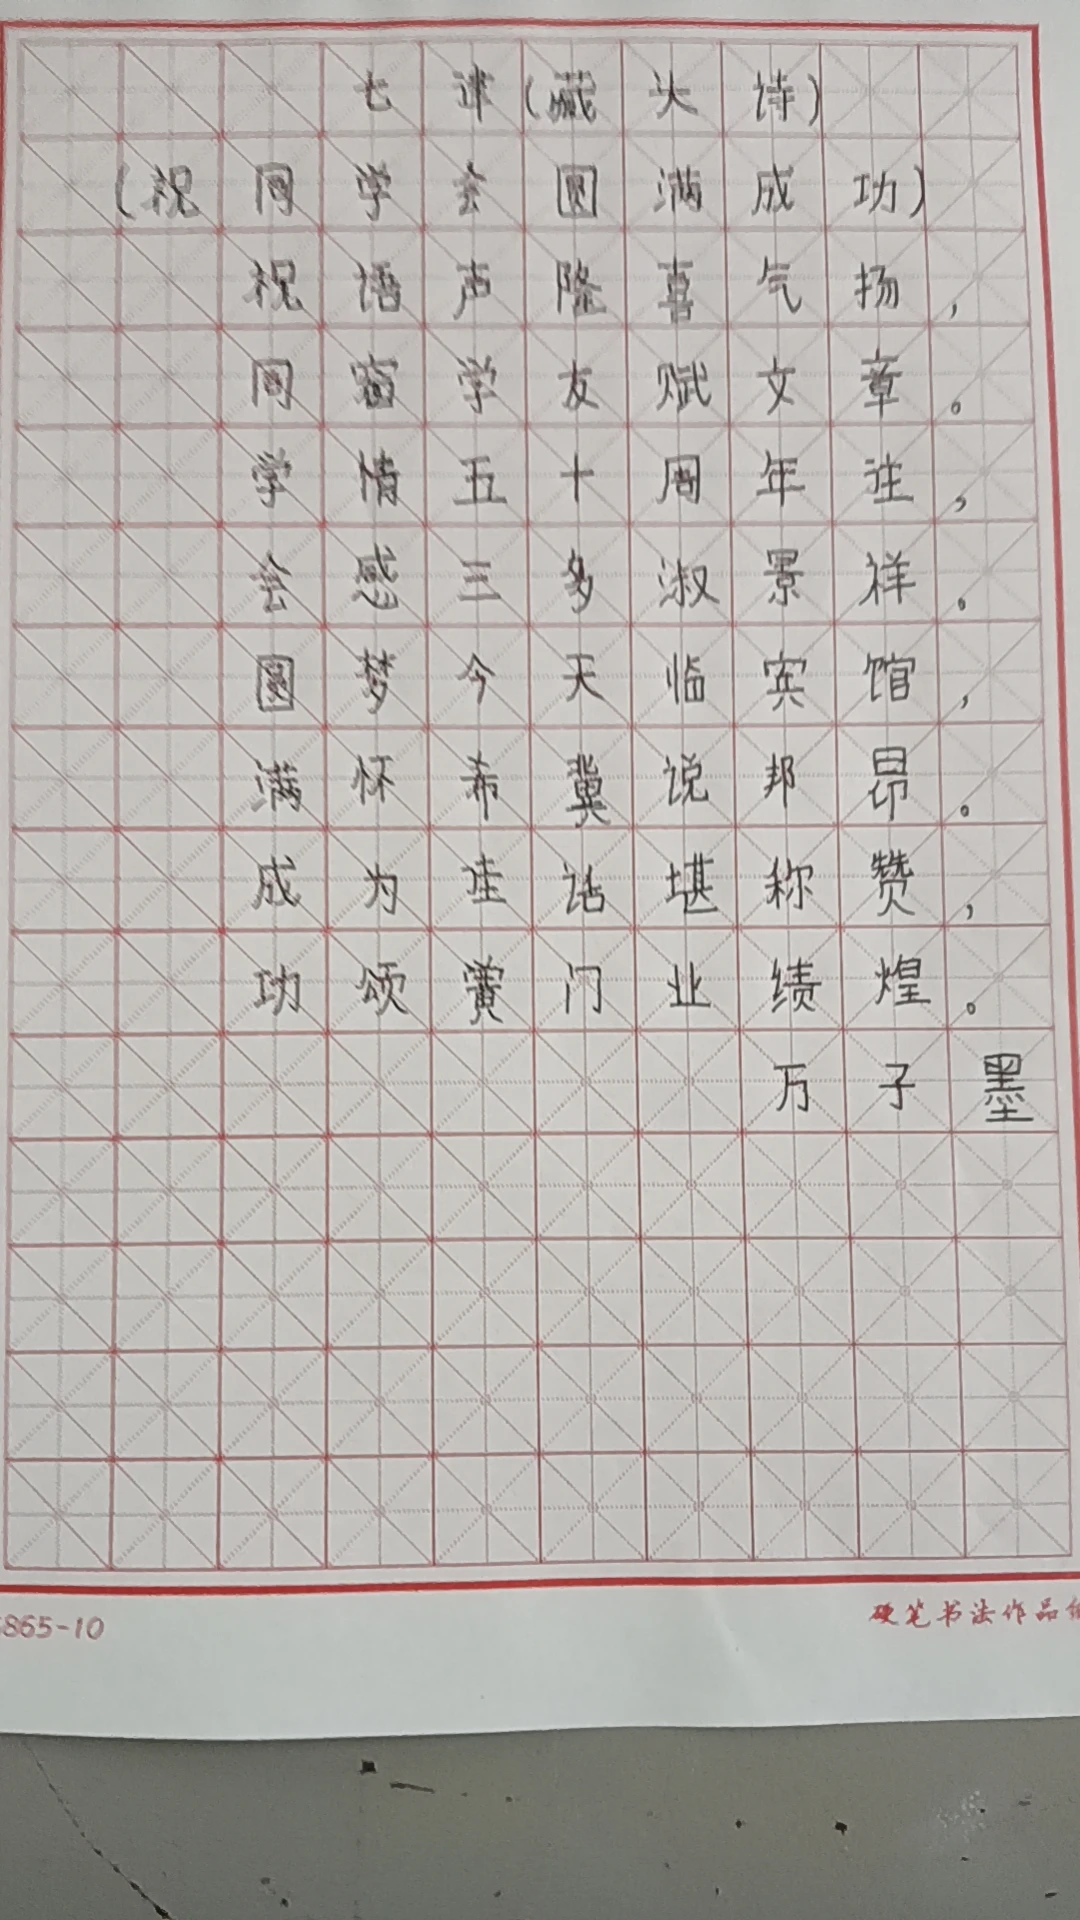 七律(藏头诗)
(祝同学会圆满成功)
祝语声隆喜气扬,
同窗学友赋文章。
学情五十周年注,
会感三多淑景祥。
圆梦今天临宾馆,
满怀希冀说邦昂。
成为佳话堪称赞,
功颂黉门业绩煌。
万子墨
865-10
硬笔书法作品